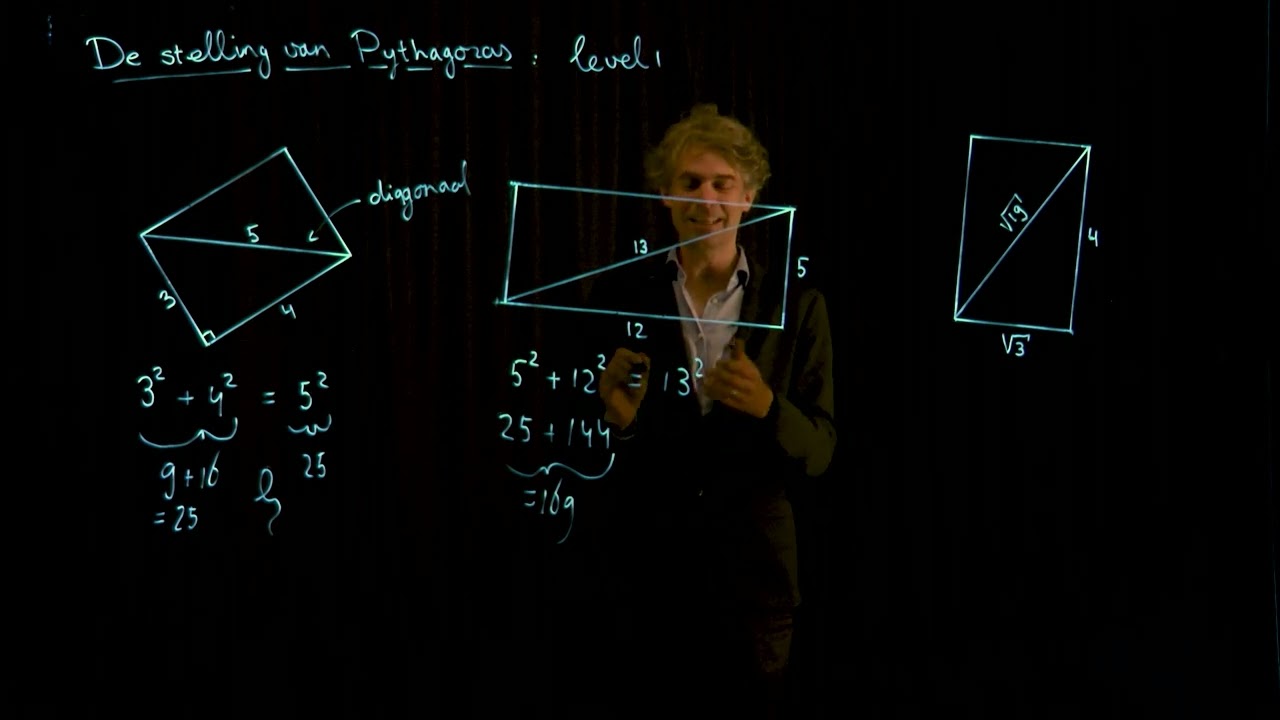 De stelling van Pythagoras : level 1
diagonaal
5
3
4
3² + 4² = 5²
9+16
25
= 25
13
5
12
5² + 12² = 13²
25 + 144
= 169
√19
4
√3